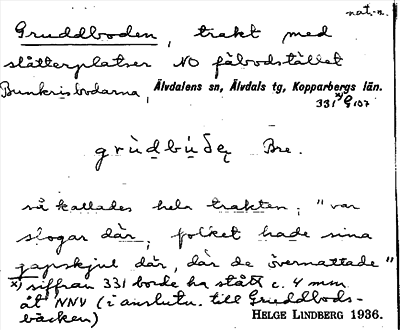 nat.-n.
Gruddboden, trakt med
slåtterplatser NO fäbodstället
Bunkrisbodarna, Älvdalens sn, Älvdals tg, Kopparbergs län.
331 x) G 107
Bre.
så kallades hela trakten; "var
slogar där, folket hade sina
gapskjul där, där de övernattade"
x) siffran 331 borde ha stått c. 4 mm
åt NNV (i anslutn. till Gruddbods-
bäcken)
HELGE LINDBERG 1936.